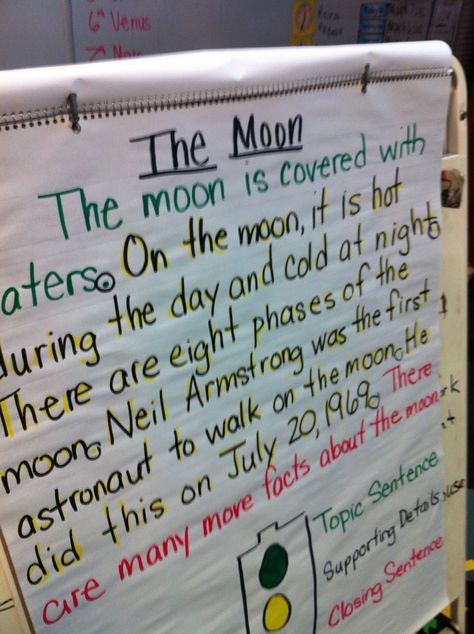 6th Venus
7th
The Moon
The moon is covered with
aters. On the moon, it is hot
during the day and cold at night.
There are eight phases of the
moon. Neil Armstrong was the first
astronaut to walk on the moon. He
did this on July 20, 1969. There
are many more facts about the moon.
Topic Sentence
Supporting Details
Closing Sentence